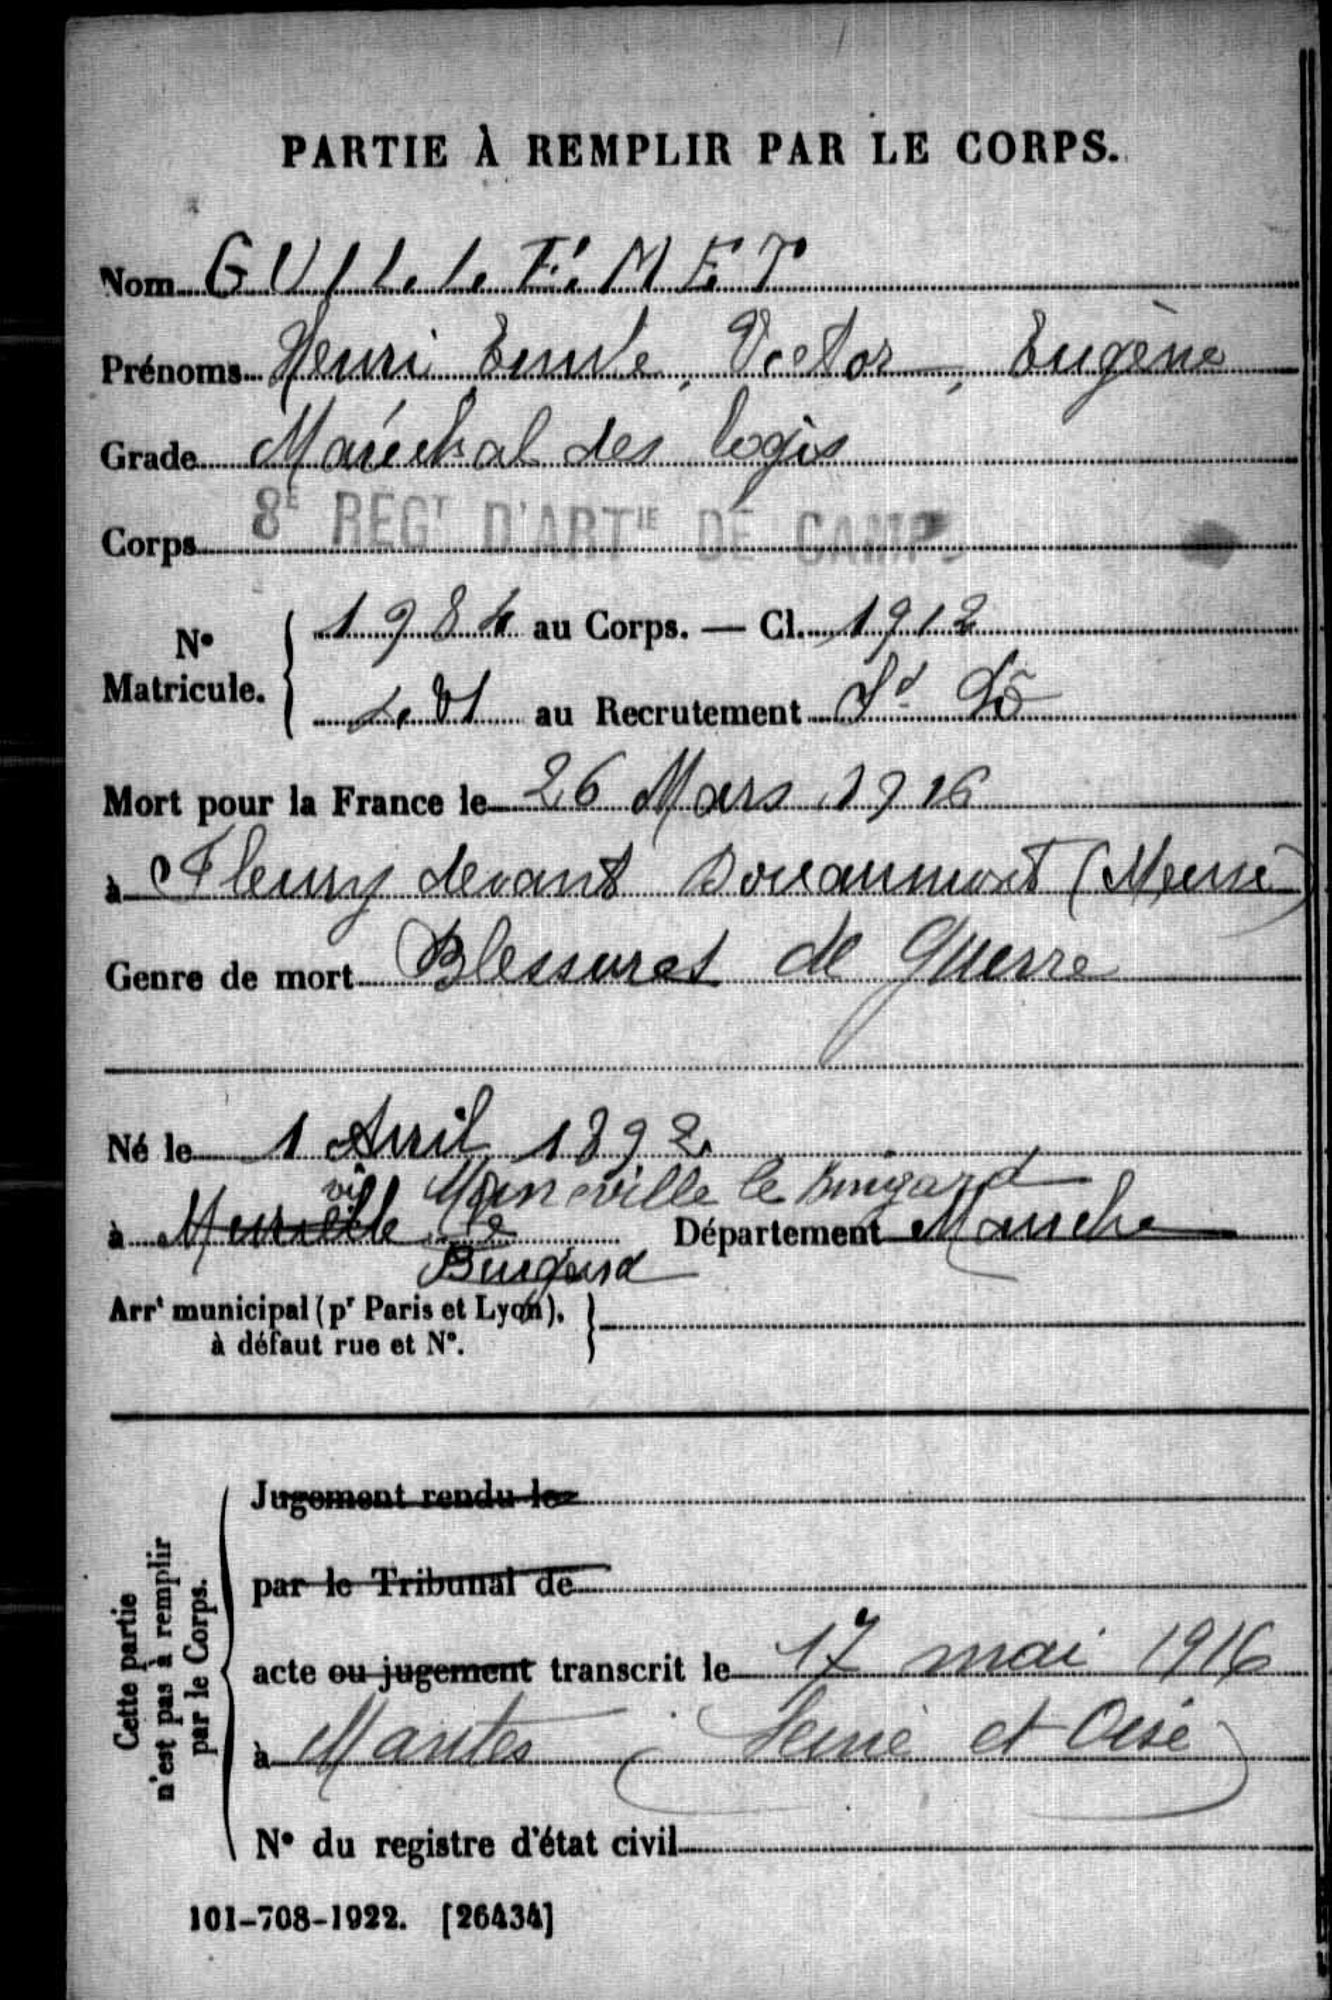 PARTIE À REMPLIR PAR LE CORPS.
Nom GUILLEMET
Prénoms Henri Emile, Victor, Eugène
Grade Maréchal des logis
Corps 8E REGT D'ARTIE DE CAMP
N° Matricule. 1984 au Corps. — Cl. 1912
au Recrutement St Lô
Mort pour la France le 26 Mars 1916
à Fleury devant Douaumont (Meuse)
Genre de mort Blessures de guerre
Né le 1 Avril 1892
le Bingard
à le Département Manche
Bingard
Arrt municipal (pr Paris et Lyon),
à défaut rue et N°.
Cette partie
n'est pas à remplir
par le Corps.
Jugement rendu le
par le Tribunal de
acte ou jugement transcrit le 17 mai 1916
à Mantes (Seine et Oise)
N° du registre d'état civil
101-708-1922. [26434]